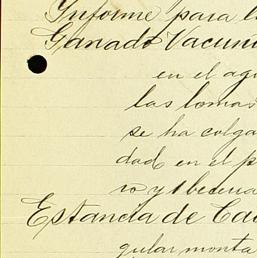 Informe para l
Ganado Vacun
en el ag
las lomas
se ha colga
dad en el p
ro y
Estancia de Ca
gular monta